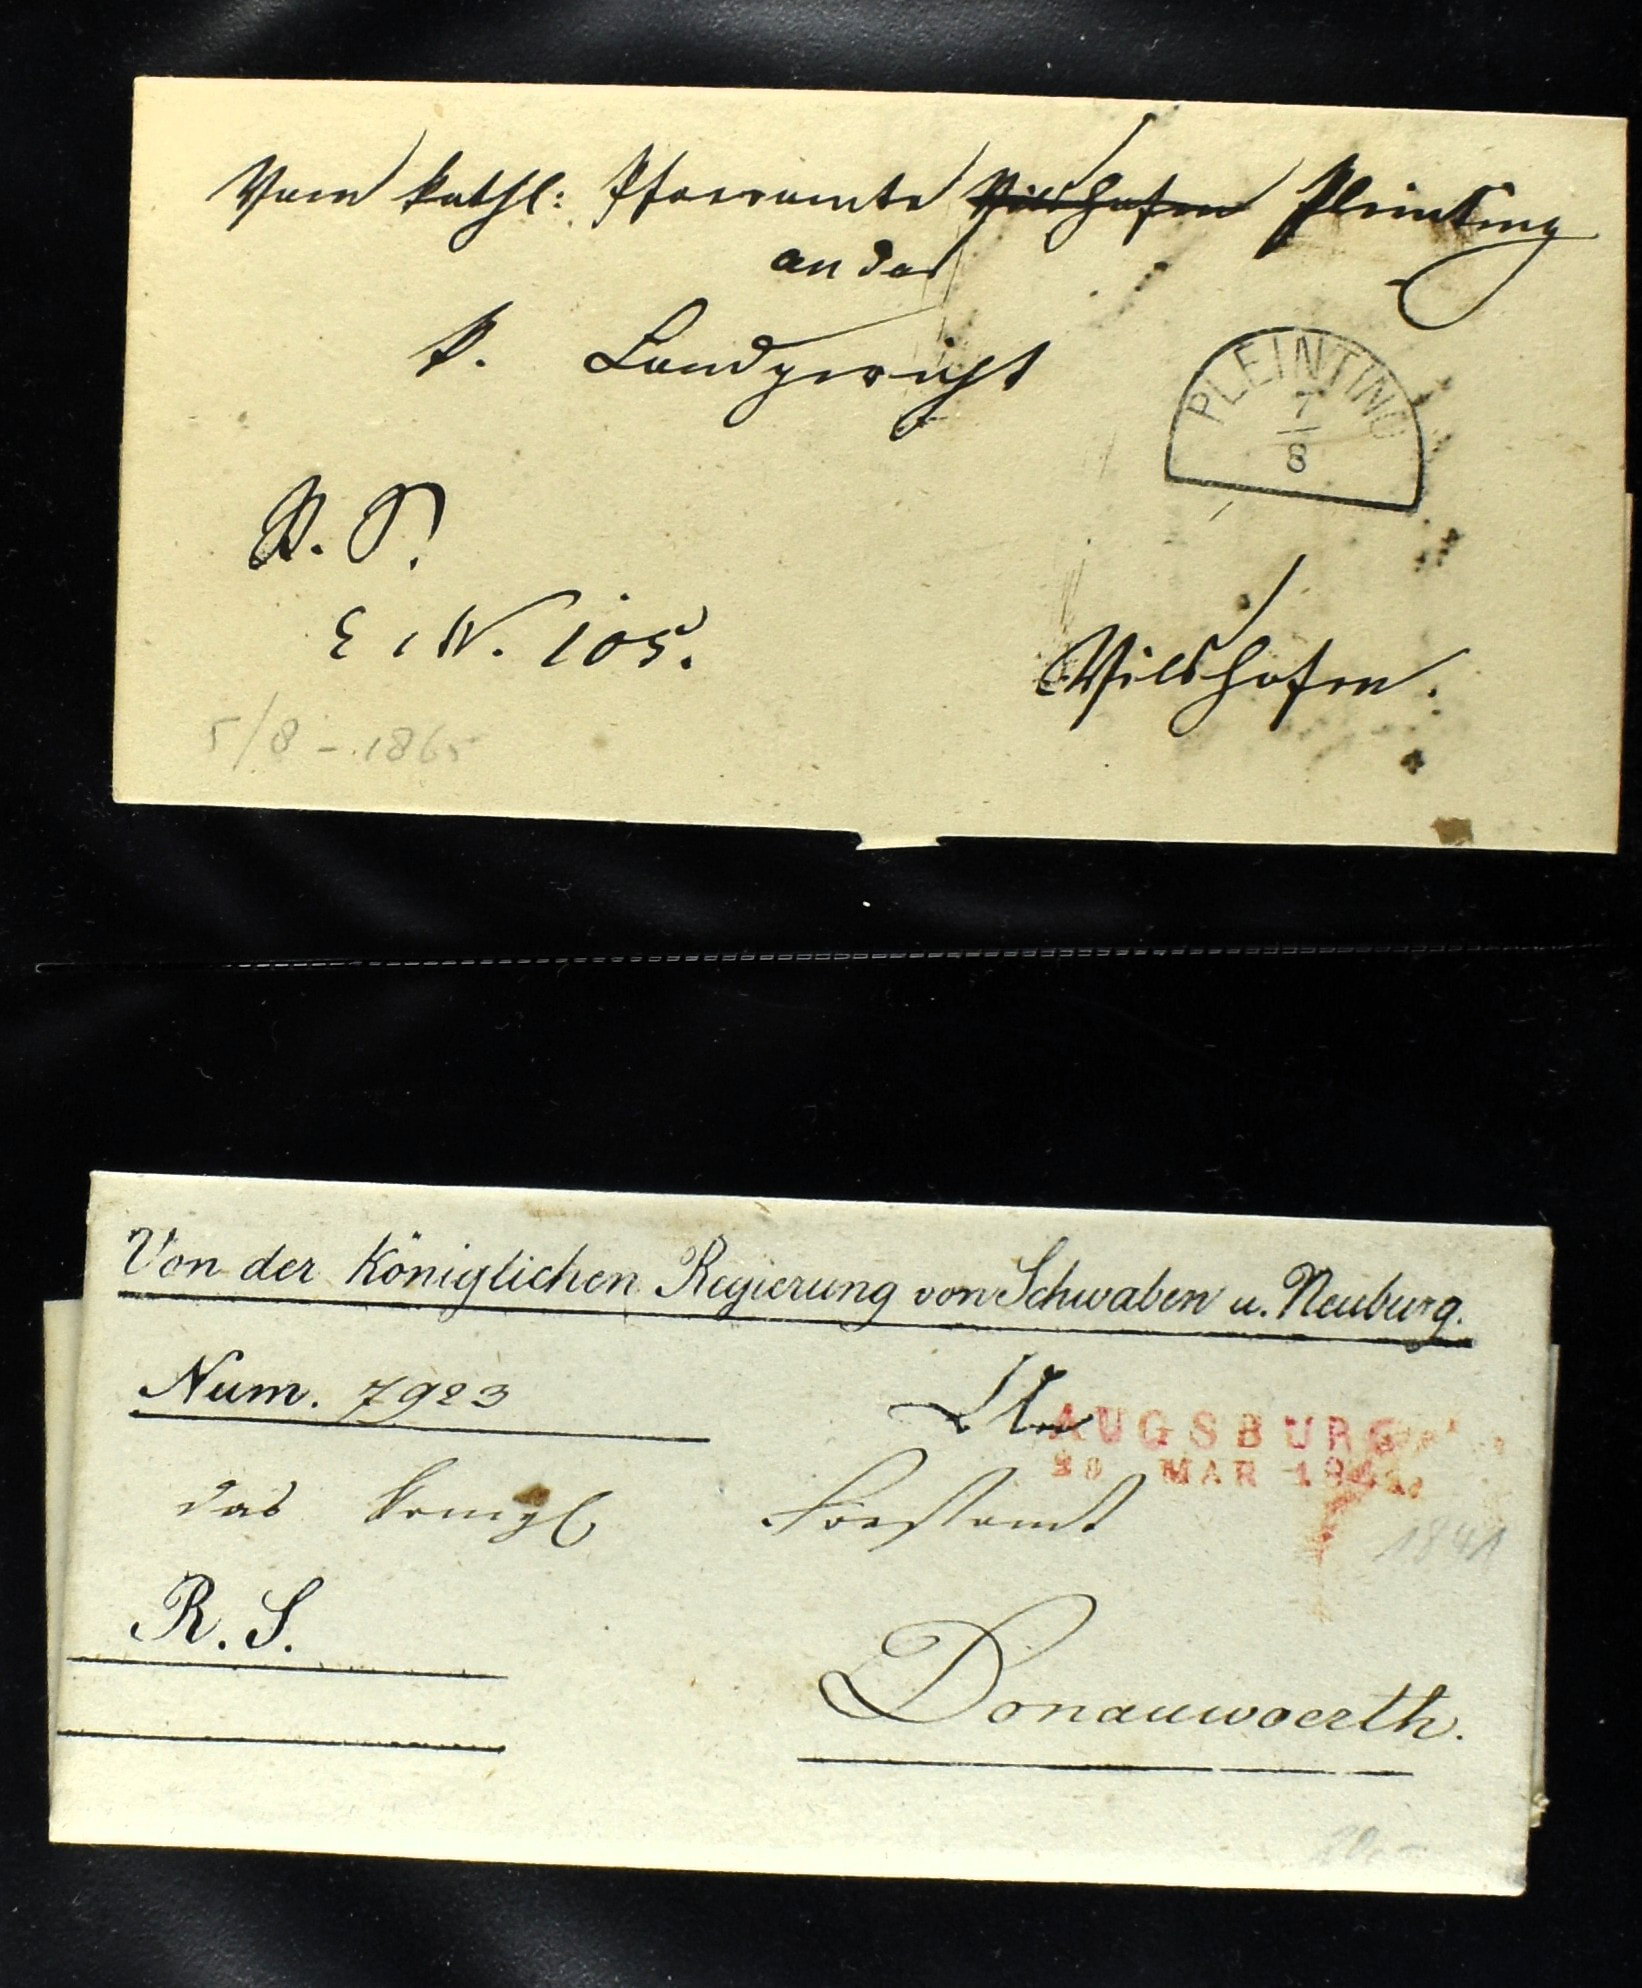 Vom kathl: Pfarramte Vilshofen Pleinting
an das
k. Landgericht
PLEINTING
7
8
R. S.
E. N. 105.
Vilshofen.
5/8 - 1865
Von der Königlichen Regierung von Schwaben u. Neuburg.
Num. 7923
An
AUGSBURG
28 MAR 1841.
das königl Forstamt
1841
R. S.
Donauwoerth.